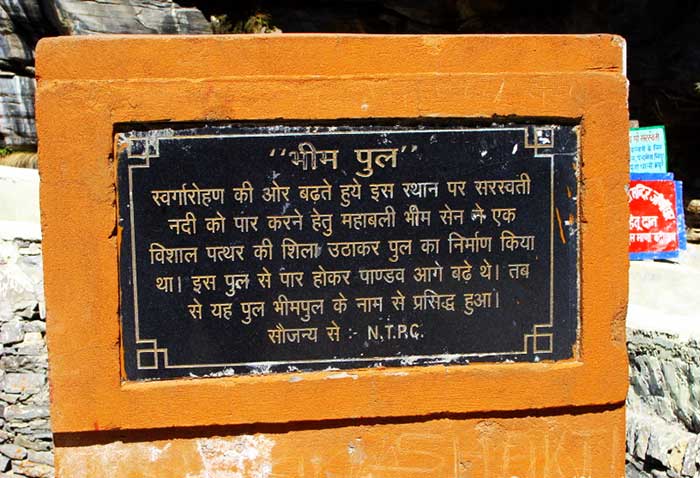 "भीम पुल"
स्वर्गारोहण की ओर बढ़ते हुये इस स्थान पर सरस्वती
नदी को पार करने हेतु महाबली भीम सेन ने एक
विशाल पत्थर की शिला उठाकर पुल का निर्माण किया
था। इस पुल से पार होकर पाण्डव आगे बढ़े थे। तब
से यह पुल भीमपुल के नाम से प्रसिद्ध हुआ।
सौजन्य से :- N.T.P.C.
सरस्वती